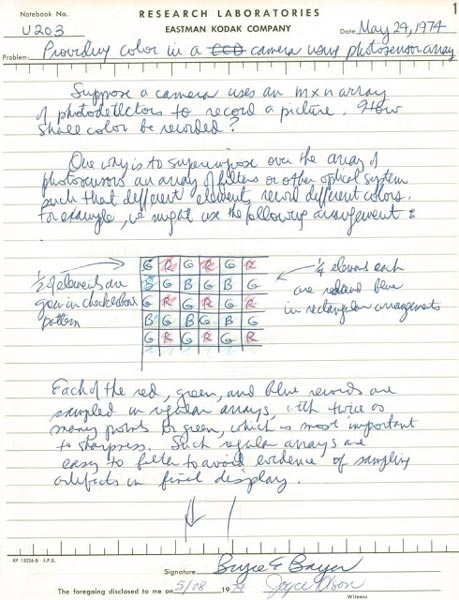 1
Notebook No. RESEARCH LABORATORIES
U203 EASTMAN KODAK COMPANY Date May 29, 1974
Problem: Providing color in a CCD camera using photosensor array
Suppose a camera uses an m x n array
of photodetectors to record a picture. How
shall color be recorded?
One way is to superimpose over the array of
photosensors an array of filters or other optical system
such that different elements record different colors.
For example, we might use the following arrangement:
1/2 of elements are
green in checkerboard
pattern
G R G R G R
B G B G B G
G R G R G R
B G B G B G
G R G R G R
1/4 elements each
are red and blue
in rectangular arrangements
Each of the red, green, and blue records are
sampled in regular arrays, with twice as
many points for green, which is most important
to sharpness. Such regular arrays are
easy to filter to avoid evidence of sampling
artifacts in final display.
KP 13226-B I.P.S.
Signature Bryce E Bayer
The foregoing disclosed to me on 5/28 1974 Joyce
Witness